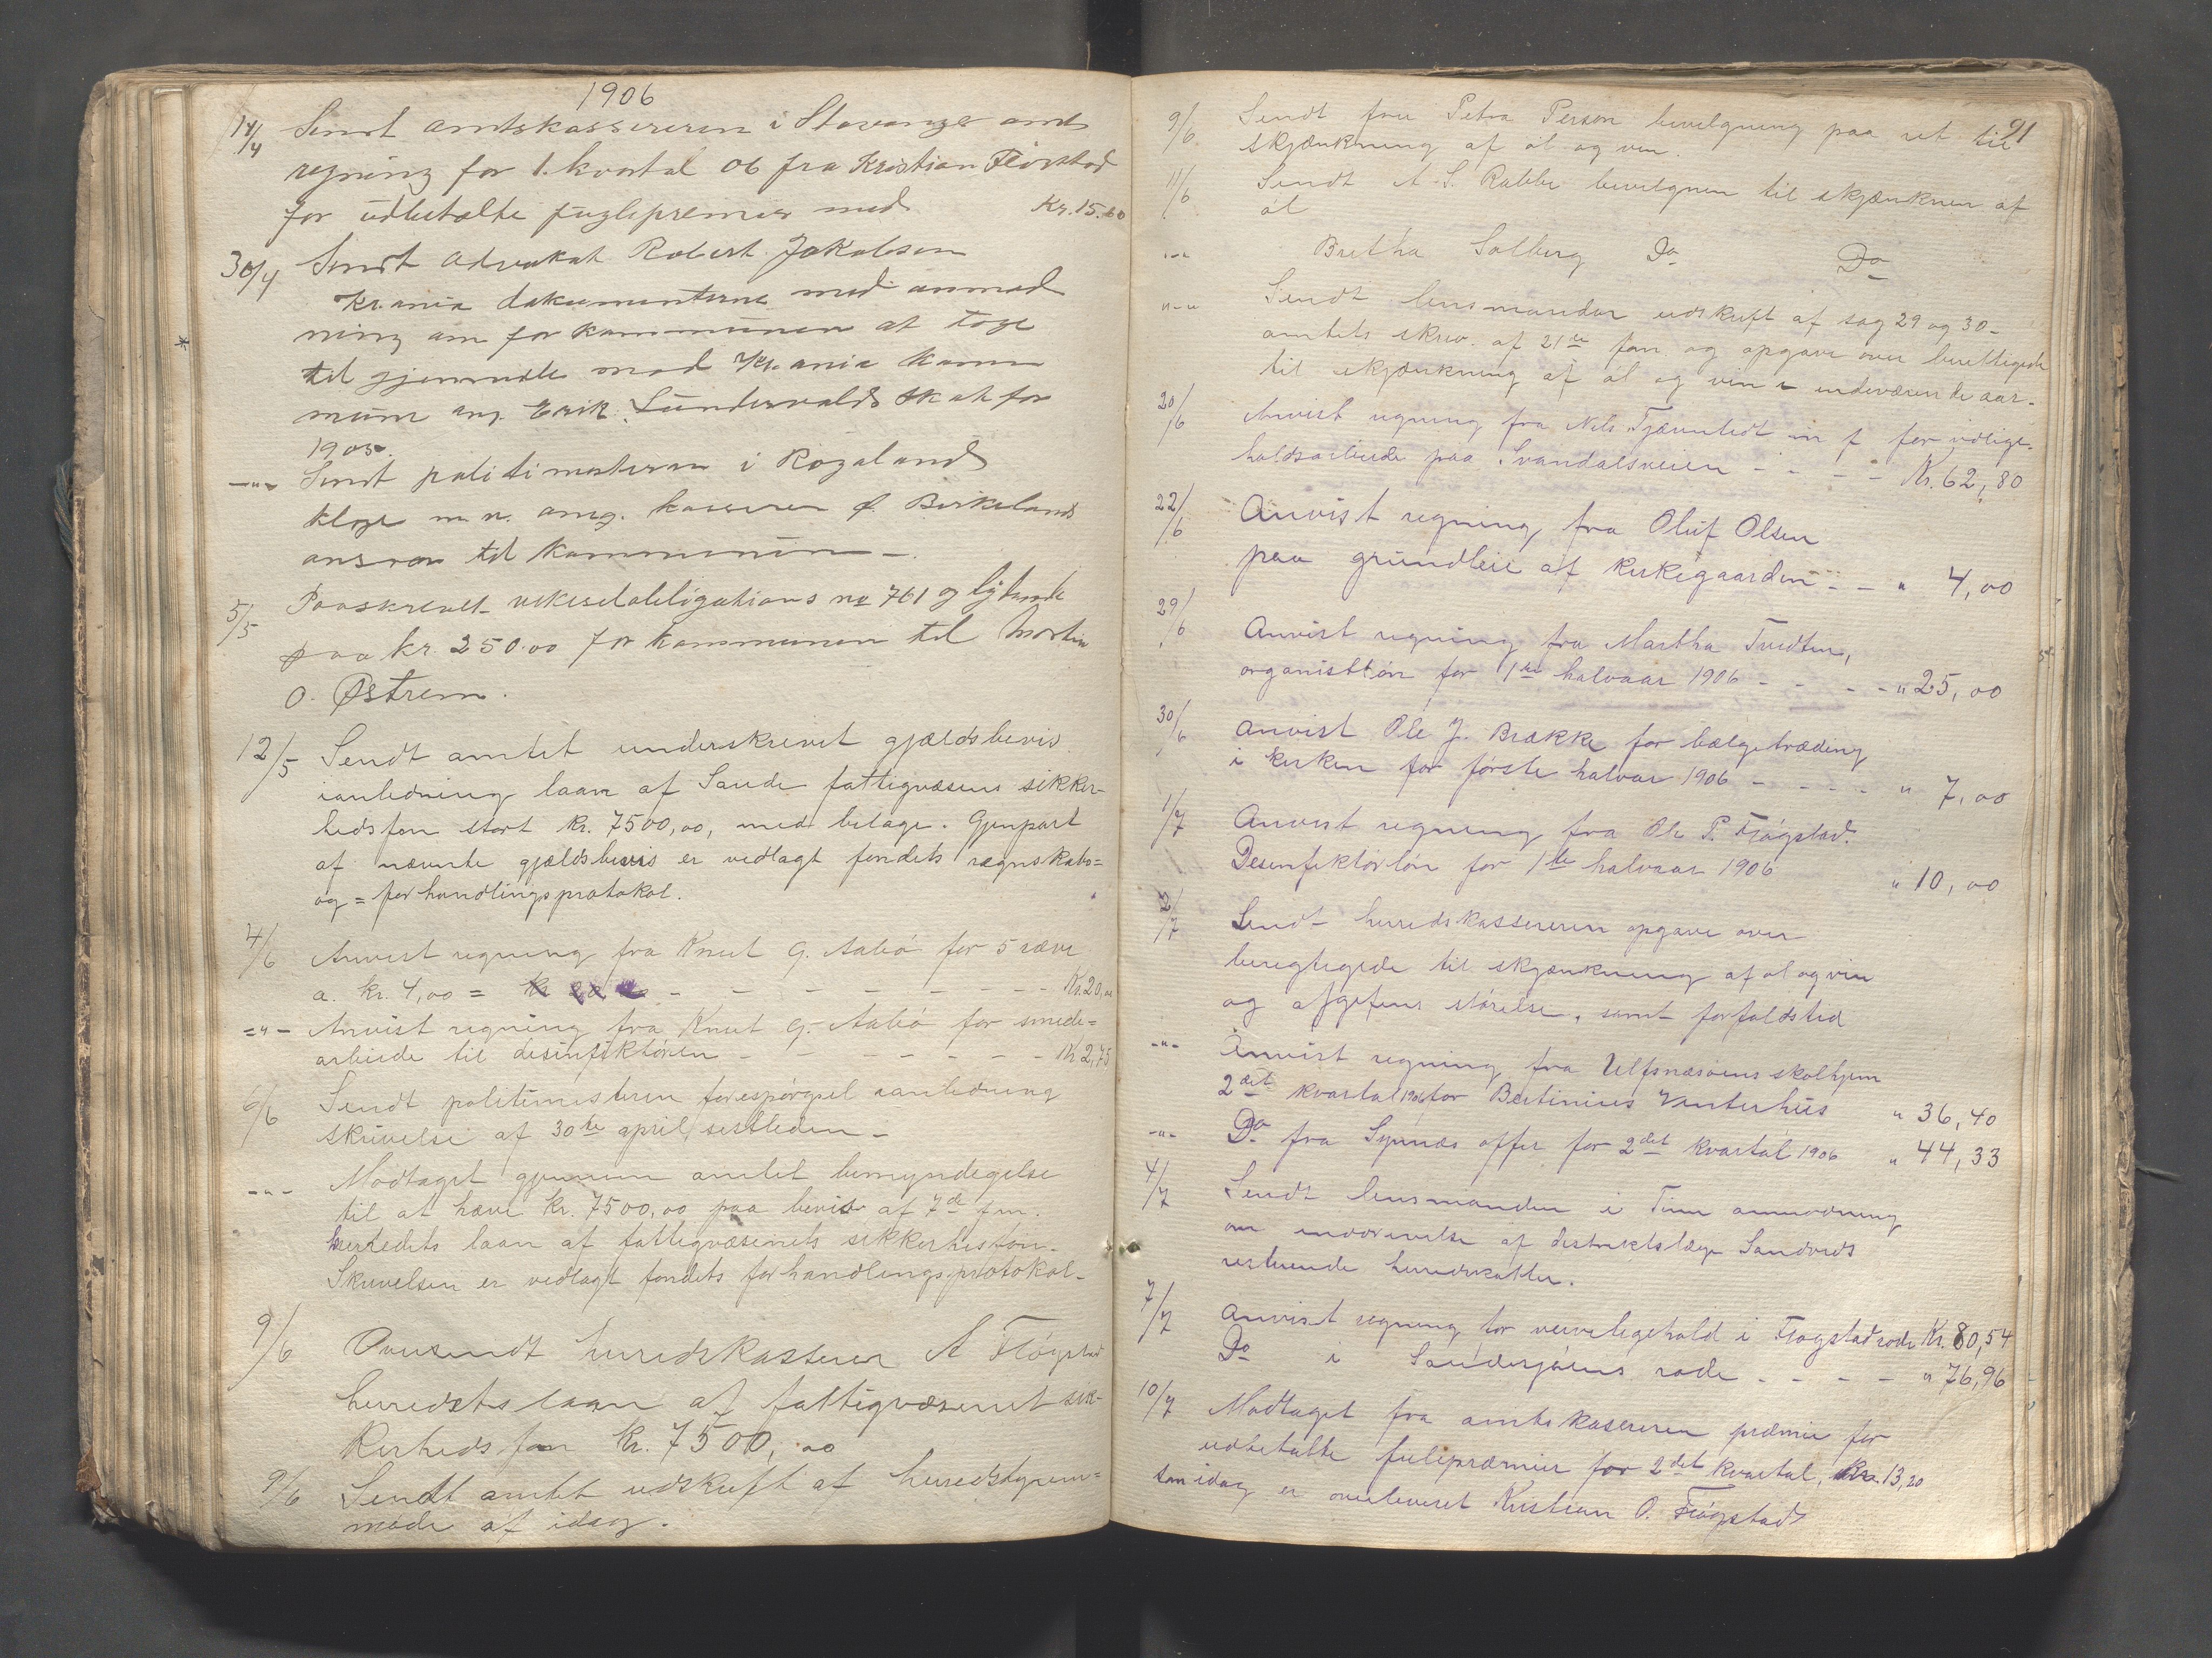 1906
14/4 Sendt amtskassereren i Stavanger amt
regning for 1. kvartal 06 fra Kristian Fløistad
for udbetalte fuglepremier med Kr. 15.60
30/4 Sendt advokat Robert Jakobsen
Kr.ania dokumenterne med anmod
ning om for kommunen at tage
til gjenmæle mod Kr.ania kom
mune ang. Erik Sundervalds skat for
1905.
-"- Sendt politimesteren i Rogaland
klage m.v. ang. kasserer Birkelands
ansvar til kommunen -.
5/5 Paaskrevet vekselobligations no 761 lydende
paa kr. 250.00 for kommunen til Morten
O. Østrem.
12/5 Sendt amtet underskrevet gjældsbevis
ianledning laan af Sande fattigvæsens sikker-
hedsfon stort kr. 7500,00, med belage. Gjenpart
af nævnte gjældsbevis er vedlagt fondets regnskabs=
og = forhandlingsprotokol.
4/6 Anvist regning fra Knut G. Aabø for 5 ræve
a. kr. 4,00 = - - - - - - - - Kr. 20,00
="- Anvist regning fra Knut G. Aabø for smede=
arbeide til desinfektøren - - - - - - - Kr 2,75
6/6 Sendt politimesteren forespørgsel ianledning
skrivelse af 30te april sistleden -
-"- Modtaget gjennem amtet bemyndegelse
til at hæve kr. 7500,00 paa bevis af 7de f.m.
herredets laan af fattigvæsenets sikkerhetsfon.
Skrivelsen er vedlagt fondets forhandlingsprotokol-
9/6 Oversendt herredskasserer A Fløgstad
herredets laan af fattigvæsenet sik-
kerhedsfon kr. 7500,00
9/6 Sendt amtet udskrift af herredstyrem=
møde af idag.
91
9/6 Sendt fru Petra Person bevilgning paa ret til
skjænkning af øl og vin.
11/6 Sendt A. S. Rabbe bevilgnen til skjænknen af
øl
"-" Bretha Solberg Do Do
"-" Sendt lensmanden udskrift af sag 29 og 30-
amtets skriv. af 21de jan. og opgave over berettigede
til skjænkning af øl og vin i indeværende aar.
20/6 Anvist regning fra Nils Tjæmtedt m f for vedlige-
holdsarbeide paa Svandalsveien - - - - Kr. 62,80
22/6 Anvist regning fra Oluf Olsen
paa grundleie af kirkegaarden - - " 4,00
29/6 Anvist regning fra Martha Tvedten,
organistløn for 1ste halvaar 1906 - - - - " 25,00
30/6 Anvist Ole J. Brække for bælgetræding
i kirken for første halvaar 1906 - - - - " 7,00
1/7 Anvist regning fra Ole P. Fløgstad.
Desenfektørløn for 1ste halvaar 1906 " 10,00
2/7 Sendt herredskassereren opgave over
beregtigede til skjænkning af øl og vin
og afgiftens størelse, samt forfaldstid
-"- Anvist regning fra Ulfsnæsøens skolhjem
2det kvartal 1906 for Bertinius Vinterhus " 36,40
-"- Do fra Synnæs offer for 2det kvartal 1906 " 44,33
4/7 Sendt lensmanden i Tinn anmodning
om inddrivelse af distriktslæge Sandveds
resterende herredsskatter.
7/7 Anvist regning for veivedligehold i Fløgstad rode Kr. 80,54
Do i Saudasjøens rode - - - - " 76,96
10/7 Modtaget fra amtskasereren præmie for
udbetalte fuglepræmier for 2det kvartal, Kr. 13,20
som idag er overleveret Kristian O. Fløgstad